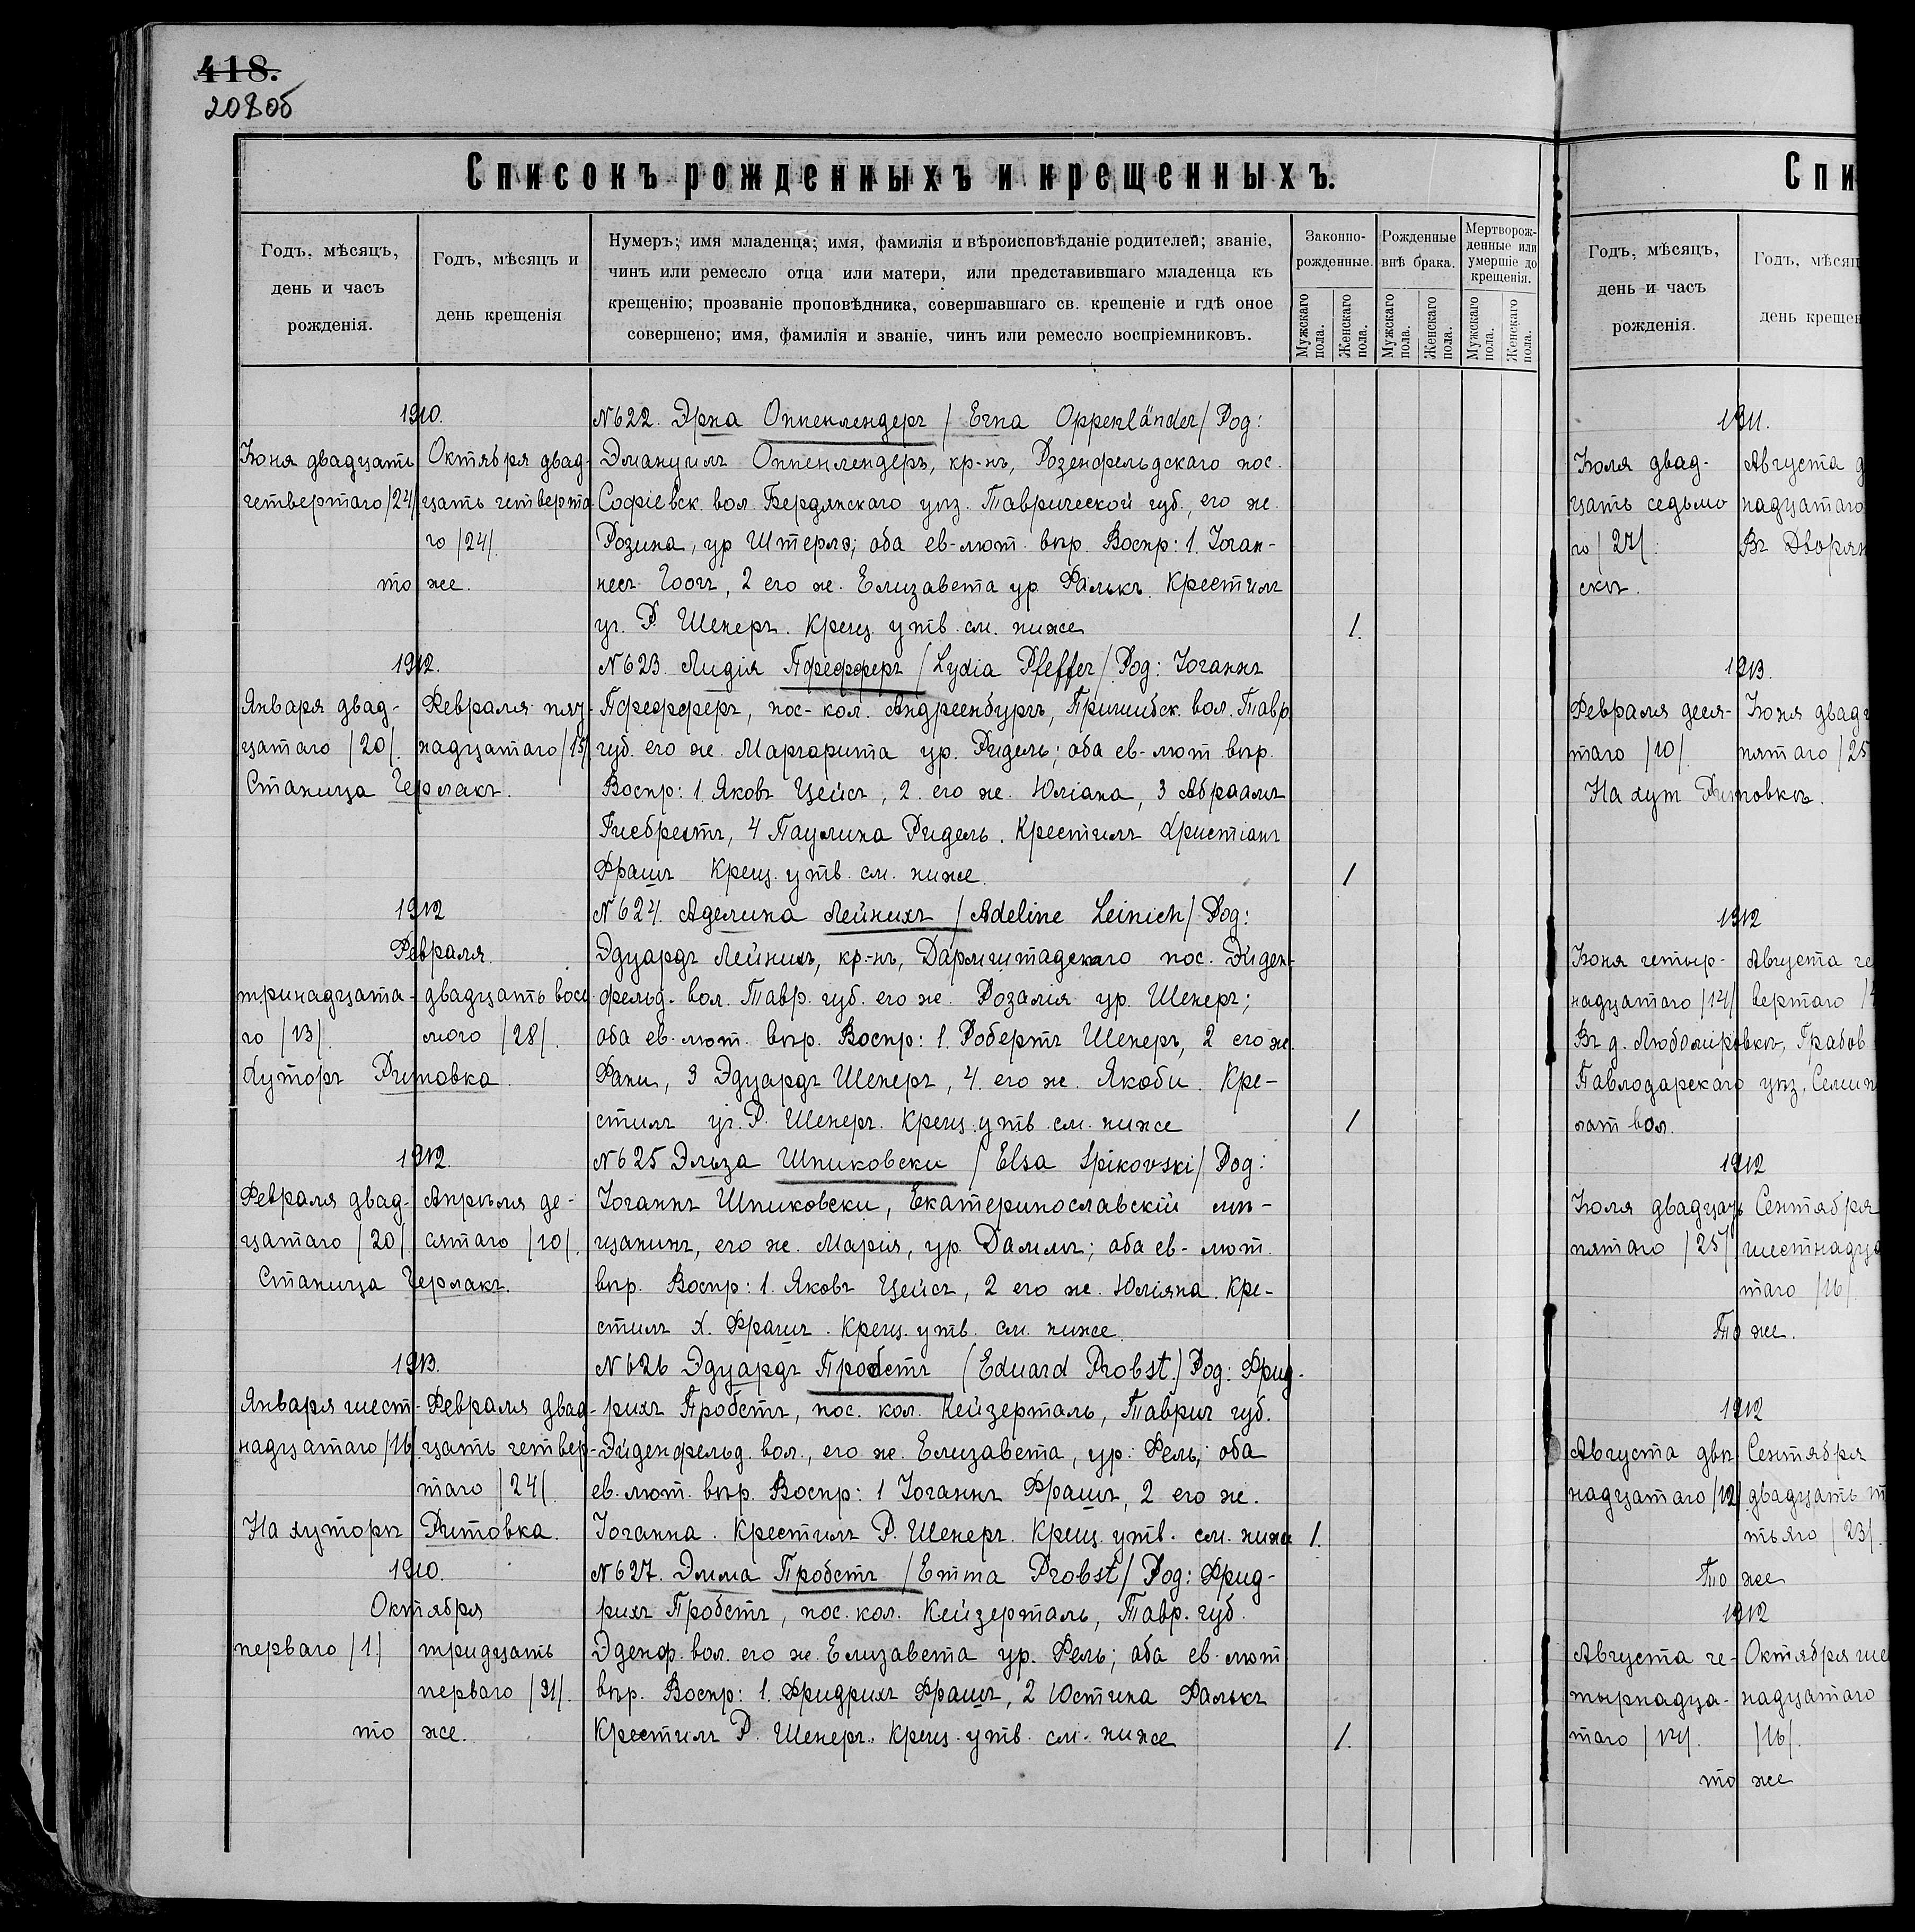 418.
208об
Списокъ рожденныхъ и крещенныхъ.
Годъ, мѣсяцъ,
день и часъ
рожденія.
Годъ, мѣсяцъ и
день крещенія
Нумеръ; имя младенца; имя, фамилія и вѣроисповѣданіе родителей; званіе,
чинъ или ремесло отца или матери, или представившаго младенца къ
крещенію; прозваніе проповѣдника, совершавшаго св. крещеніе и гдѣ оное
совершено; имя, фамилія и званіе, чинъ или ремесло воспріемниковъ.
Законно-
рожденные.
Рожденные
внѣ брака.
Мертворож-
денные или
умершіе до
крещенія.
Мужскаго пола.
Женскаго пола.
Мужскаго пола.
Женскаго пола.
Мужскаго пола.
Женскаго пола.
1910.
Іюня двадцать
четвертаго /24/
Октября двад-
цать четверта
го /24/.
то же.
№ 622. Эрна Оппенлендеръ / Erna Oppenländer / Род:
Эмануилъ Оппенлендеръ, кр-нъ, Розенфельдскаго пос.
Софіевск. вол. Бердянскаго уѣз. Таврической губ., его ж.
Розина, ур Штерлэ; оба ев-лют. вѣр. Воспр: 1. Іоган-
несъ Гоогъ, 2 его ж. Елизавета ур. Фалькъ. Крестилъ
уч. Р. Шенеръ. Крещ. утв. см. ниже
1.
1912.
Января двад-
цатаго /20/.
Февраля пят-
надцатаго /15/
Станица Черлакъ.
№ 623. Лидія Пфефферъ / Lydia Pfeffer / Род: Іоганнъ
Пфефферъ, пос-кол. Андреенбургъ, Пришибск. вол. Тавр
губ. его ж. Маргарита ур. Ридель; оба ев-лют вѣр.
Воспр: 1. Яковъ Цейсъ, 2. его ж. Юліана, 3 Абраамъ
Гисбрехтъ, 4 Паулина Ридель. Крестилъ Христіанъ
Фрашъ Крещ. утв. см. ниже.
1
1912
Февраля.
тринадцата-
го /13/.
двадцать вось
мого /28/.
Хуторъ Ритовка.
№ 624. Аделина Лейнихъ / Adeline Leinich / Род:
Эдуардъ Лейнихъ, кр-нъ, Дармштадскаго пос. Эйген-
фельд. вол. Тавр. губ. его ж. Розалія ур. Шенеръ;
оба ев. лют. вѣр. Воспр: 1. Робертъ Шенеръ, 2 его ж.
Фани, 3 Эдуардъ Шенеръ, 4. его ж. Якоби. Кре-
стилъ уч. Р. Шенеръ. Крещ. утв. см. ниже
1
1912.
Февраля двад-
цатаго /20/.
Апрѣля де-
сятаго /10/.
Станица Черлакъ.
№ 625 Эльза Шпиковски / Elsa Spikovski / Род:
Іоганнъ Шпиковски, Екатеринославскій мѣ-
щанинъ, его ж. Марія, ур. Даммъ; оба ев-лют.
вѣр. Воспр: 1. Яковъ Цейсъ, 2 его ж. Юліяна. Кре-
стилъ Х. Фрашъ. Крещ. утв. см. ниже.
1913.
Января шест-
надцатаго /16
Февраля двад-
цать четвер-
таго /24/.
На хуторѣ Ритовка.
№ 626 Эдуардъ Пробстъ (Eduard Probst.) Род: Фрид-
рихъ Пробстъ, пос. кол. Кейзерталь, Таврич губ.
Эйгенфельд. вол., его ж. Елизавета, ур: Рель; оба
ев. лют. вѣр. Воспр: 1 Іоганнъ Фрашъ, 2 его ж.
Іоганна. Крестилъ Р. Шенеръ. Крещ. утв. см. ниже
1.
1910.
Октября
перваго /1./
тридцать
перваго /31/.
то же.
№ 627. Эмма Пробстъ / Emma Probst / Род: Фрид-
рихъ Пробстъ, пос. кол. Кейзерталь, Тавр. губ.
Эденф. вол. его ж. Елизавета ур. Рель; оба ев. лют
вѣр. Воспр: 1. Фридрихъ Фрашъ, 2 Юстина Фалькъ
Крестилъ Р. Шенеръ. Крещ. утв. см. ниже
1.
Спи
Годъ, мѣсяцъ,
день и часъ
рожденія.
Годъ, мѣсяц
день крещен
1911.
Іюля двад-
цать седьмо
го /27/.
Августа д
надцатаго
Въ Дворян
скъ.
1913.
Февраля деся-
таго /10/.
Іюня двадц
пятаго /25
На хут Ритовкѣ.
1912
Іюня четыр-
надцатаго /14/
Августа че
вертаго /4
Въ д. Любомировкѣ, Грабов
Павлодарскаго уѣз, Семип
лат вол.
1912
Іюля двадцать
пятаго /25/
Сентября
шестнадца
таго /16/.
То же.
1912
Августа двѣ
надцатаго /12/
Сентября
двадцать т
тьяго /23/.
То же
1912
Августа че-
тырнадца-
таго /14/.
Октября ше
надцатаго
/16/.
то же